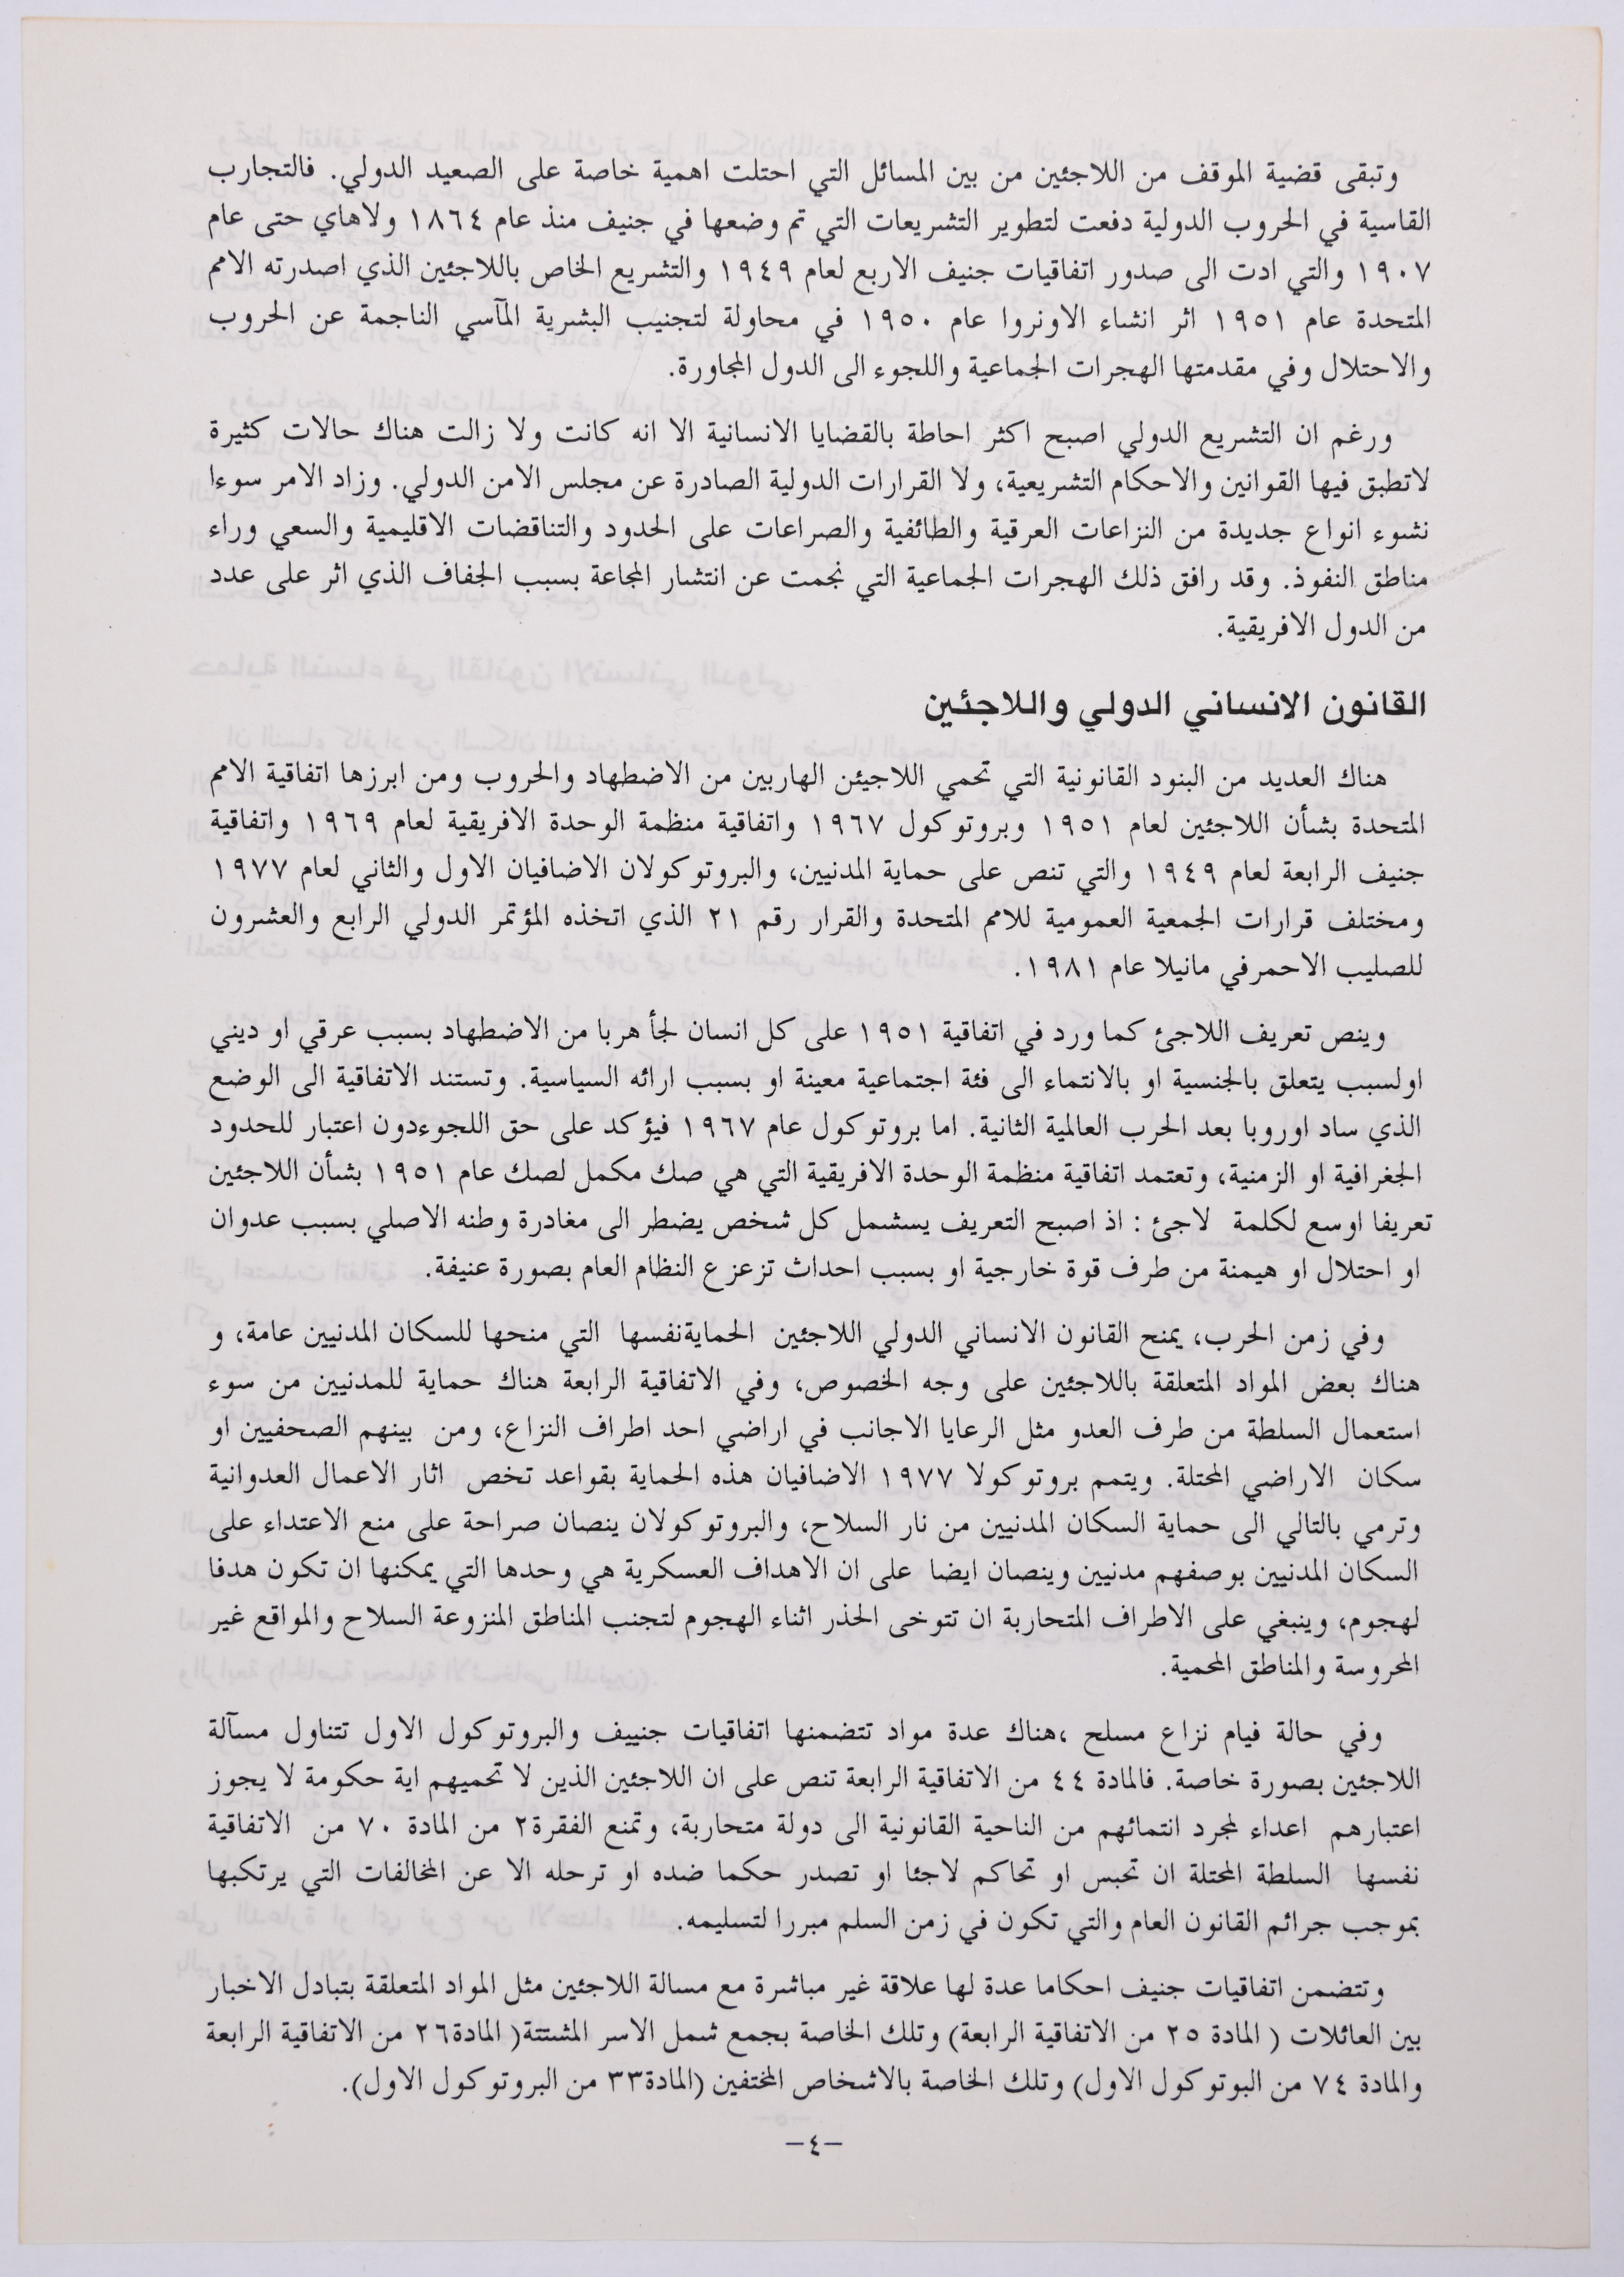 وتبقى قضية الموقف من اللاجئين من بين المسائل التي احتلت اهمية خاصة على الصعيد الدولي. فالتجارب
القاسية في الحروب الدولية دفعت لتطوير التشريعات التي تم وضعها في جنيف منذ عام ١٨٦٤ ولاهاي حتى عام
١٩٠٧ والتي ادت الى صدور اتفاقيات جنيف الاربع لعام ١٩٤٩ والتشريع الخاص باللاجئين الذي اصدرته الامم
المتحدة عام ١٩٥١ اثر انشاء الاونروا عام ١٩٥٠ في محاولة لتجنيب البشرية المآسي الناجمة عن الحروب
والاحتلال وفي مقدمتها الهجرات الجماعية واللجوء الى الدول المجاورة.
ورغم ان التشريع الدولي اصبح اكثر احاطة بالقضايا الانسانية الا انه كانت ولا زالت هناك حالات كثيرة
لاتطبق فيها القوانين والاحكام التشريعية، ولا القرارات الدولية الصادرة عن مجلس الامن الدولي. وزاد الامر سوءا
نشوء انواع جديدة من النزاعات العرقية والطائفية والصراعات على الحدود والتناقضات الاقليمية والسعي وراء
مناطق النفوذ. وقد رافق ذلك الهجرات الجماعية التي نجمت عن انتشار المجاعة بسبب الجفاف الذي اثر على عدد
من الدول الافريقية.
القانون الانساني الدولي واللاجئين
هناك العديد من البنود القانونية التي تحمي اللاجيئن الهاربين من الاضطهاد والحروب ومن ابرزها اتفاقية الامم
المتحدة بشأن اللاجئين لعام ١٩٥١ وبروتوكول ١٩٦٧ واتفاقية منظمة الوحدة الافريقية لعام ١٩٦٩ واتفاقية
جنيف الرابعة لعام ١٩٤٩ والتي تنص على حماية المدنيين، والبروتوكولان الاضافيان الاول والثاني لعام ١٩٧٧
ومختلف قرارات الجمعية العمومية للامم المتحدة والقرار رقم ٢١ الذي اتخذه المؤتمر الدولي الرابع والعشرون
للصليب الاحمرفي مانيلا عام ١٩٨١.
وينص تعريف اللاجئ كما ورد في اتفاقية ١٩٥١ على كل انسان لجأ هربا من الاضطهاد بسبب عرقي او ديني
اولسبب يتعلق بالجنسية او بالانتماء الى فئة اجتماعية معينة او بسبب ارائه السياسية. وتستند الاتفاقية الى الوضع
الذي ساد اوروبا بعد الحرب العالمية الثانية. اما بروتوكول عام ١٩٦٧ فيؤكد على حق اللجوءدون اعتبار للحدود
الجغرافية او الزمنية، وتعتمد اتفاقية منظمة الوحدة الافريقية التي هي صك مكمل لصك عام ١٩٥١ بشأن اللاجئين
تعريفا اوسع لكلمة لاجئ : اذ اصبح التعريف يسشمل كل شخص يضطر الى مغادرة وطنه الاصلي بسبب عدوان
او احتلال او هيمنة من طرف قوة خارجية او بسبب احداث تزعزع النظام العام بصورة عنيفة.
وفي زمن الحرب، يمنح القانون الانساني الدولي اللاجئين الحمايةنفسها التي منحها للسكان المدنيين عامة، و
هناك بعض المواد المتعلقة باللاجئين على وجه الخصوص، وفي الاتفاقية الرابعة هناك حماية للمدنيين من سوء
استعمال السلطة من طرف العدو مثل الرعايا الاجانب في اراضي احد اطراف النزاع، ومن بينهم الصحفيين او
سكان الاراضي المحتلة. ويتمم بروتوكولا ١٩٧٧ الاضافيان هذه الحماية بقواعد تخص اثار الاعمال العدوانية
وترمي بالتالي الى حماية السكان المدنيين من نار السلاح، والبروتوكولان ينصان صراحة على منع الاعتداء على
السكان المدنيين بوصفهم مدنيين وينصان ايضا على ان الاهداف العسكرية هي وحدها التي يمكنها ان تكون هدفا
لهجوم، وينبغي على الاطراف المتحاربة ان تتوخى الحذر اثناء الهجوم لتجنب المناطق المنزوعة السلاح والمواقع غير
المحروسة والمناطق المحمية.
وفي حالة فيام نزاع مسلح ،هناك عدة مواد تتضمنها اتفاقيات جنييف والبروتوكول الاول تتناول مسآلة
اللاجئين بصورة خاصة. فالمادة ٤٤ من الاتفاقية الرابعة تنص على ان اللاجئين الذين لا تحميهم اية حكومة لا يجوز
اعتبارهم اعداء لمجرد انتمائهم من الناحية القانونية الى دولة متحاربة، وتمنع الفقرة٢ من المادة ٧٠ من الاتفاقية
نفسها السلطة المحتلة ان تحبس او تحاكم لاجئا او تصدر حكما ضده او ترحله الا عن المخالفات التي يرتكبها
بموجب جرائم القانون العام والتي تكون في زمن السلم مبررا لتسليمه.
وتتضمن اتفاقيات جنيف احكاما عدة لها علاقة غير مباشرة مع مسالة اللاجئين مثل المواد المتعلقة بتبادل الاخبار
بين العائلات ( المادة ٢٥ من الاتفاقية الرابعة) وتلك الخاصة بجمع شمل الاسر المشتتة( المادة٢٦ من الاتفاقية الرابعة
والمادة ٧٤ من البوتوكول الاول) وتلك الخاصة بالاشخاص المختفين (المادة٣٣ من البروتوكول الاول).
–٤–